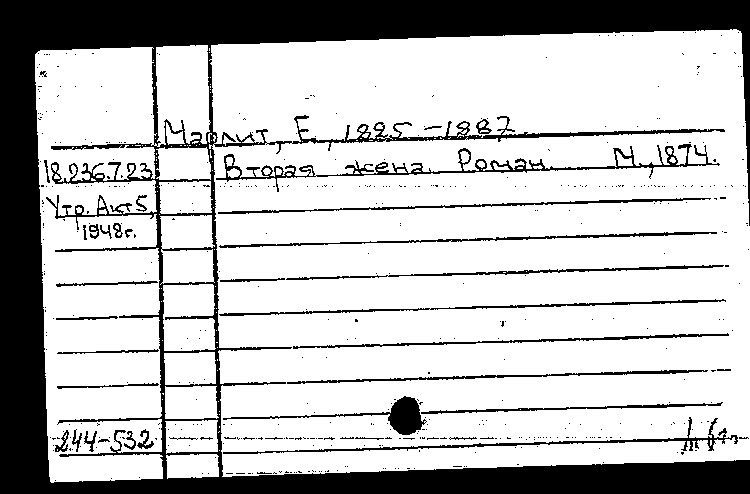 Марлит, Е., 1825-1887.
18.236.7.23 Вторая жена. Роман. М., 1874.
Утр. Акт 5,
1948г.
244-532